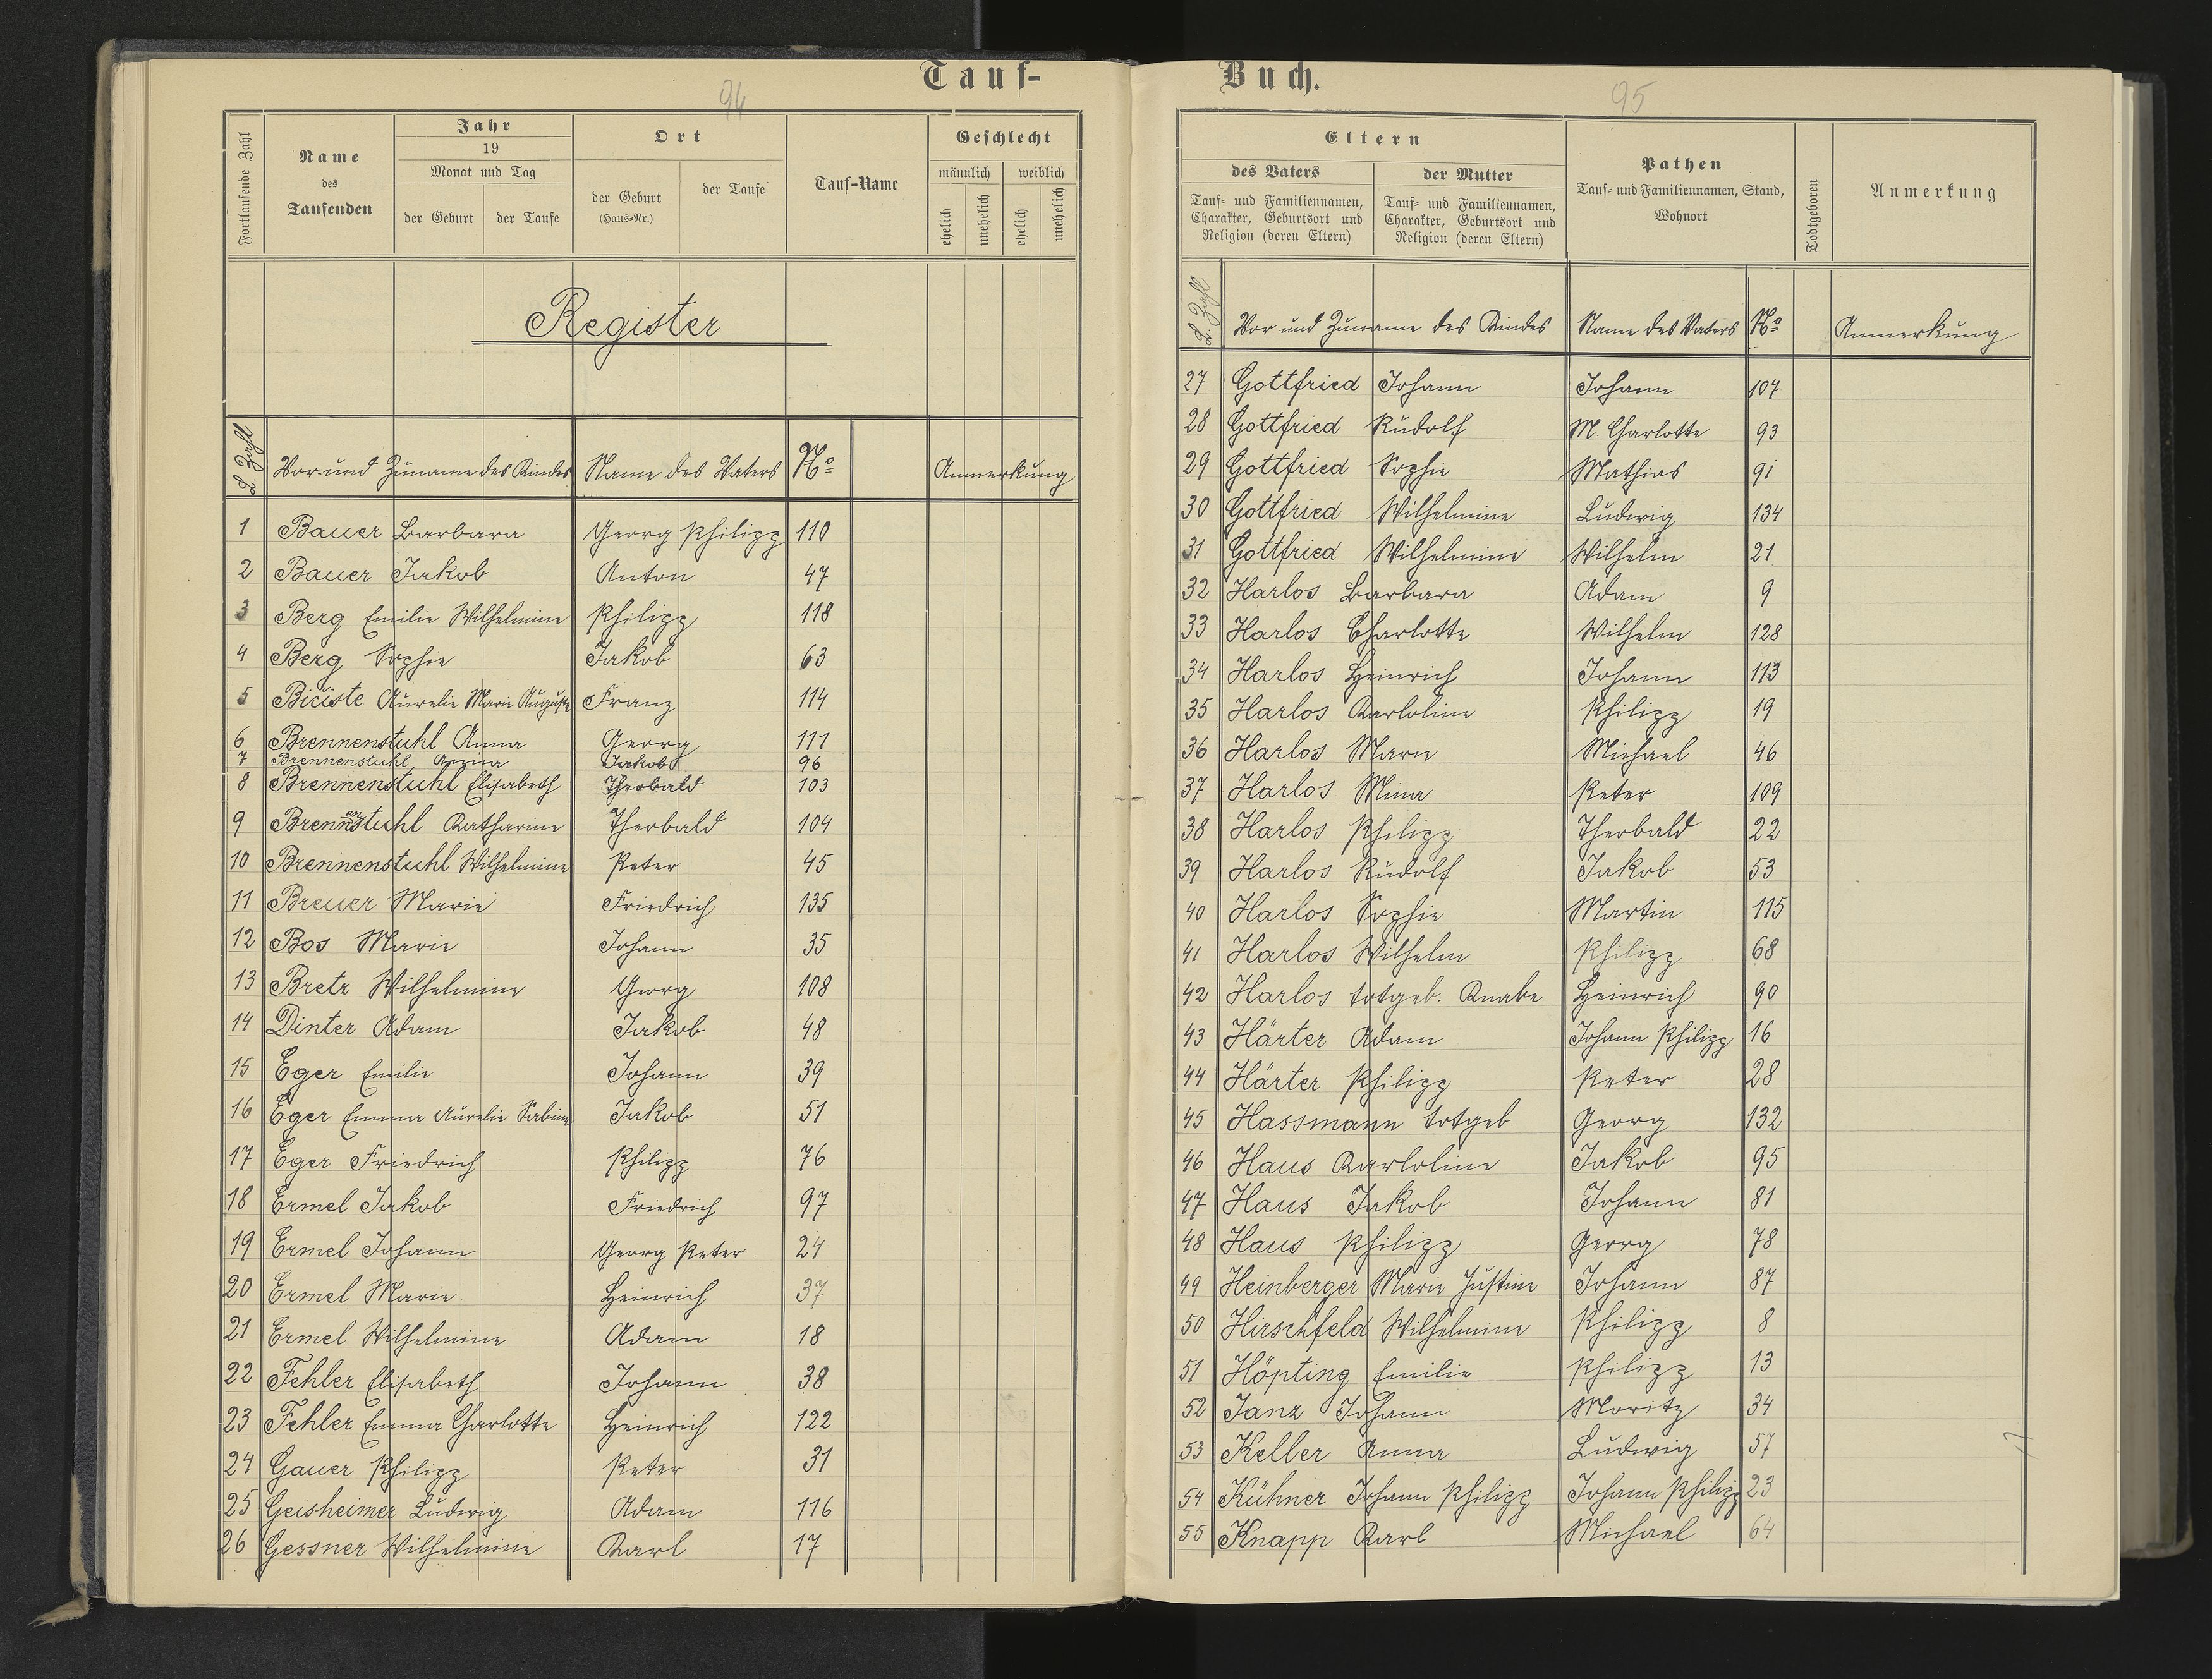 Tauf-
94
Fortlaufende Zahl
Name
des
Taufenden
Jahr
19
Monat und Tag
der Geburt
der Taufe
Ort
der Geburt
(Haus-Nr.)
der Taufe
Tauf-Name
Geschlecht
männlich
weiblich
ehelich
unehelich
ehelich
unehelich
Register
L. Zahl Vor und Zuname des Kindes Name des Vaters No Anmerkung
1 Bauer Barbara Georg Philipp 110
2 Bauer Jakob Anton 47
3 Berg Emilie Wilhelmine Philipp 118
4 Berg Sophie Jakob 63
5 Biciste Aurelie Marie Auguste Franz 114
6 Brennenstuhl Anna Georg 111
7 Brennenstuhl Jakob 96
8 Brennenstuhl Elisabeth Theobald 103
9 Brennenstuhl Katharine Theobald 104
10 Brennenstuhl Wilhelmine Peter 45
11 Breuer Marie Friedrich 135
12 Bos Marie Johann 35
13 Bretz Wilhelmine Georg 108
14 Dinter Adam Jakob 48
15 Eger Emilie Johann 39
16 Eger Emma Aurelie Sabine Jakob 51
17 Eger Friedrich Philipp 76
18 Ermel Jakob Friedrich 97
19 Ermel Johann Georg Peter 24
20 Ermel Marie Heinrich 37
21 Ermel Wilhelmine Adam 18
22 Fehler Elisabeth Johann 38
23 Fehler Emma Charlotte Heinrich 122
24 Gauer Philipp Peter 31
25 Geisheimer Ludwig Adam 116
26 Gessner Wilhelmine Karl 17
Buch.
95
Eltern
des Vaters
Tauf- und Familiennamen,
Charakter, Geburtsort und
Religion (deren Eltern)
der Mutter
Tauf- und Familiennamen,
Charakter, Geburtsort und
Religion (deren Eltern)
Pathen
Tauf- und Familiennamen, Stand,
Wohnort
Todtgeboren
Anmerkung
L. Zahl Vor und Zuname des Kindes Name des Vaters No Anmerkung
27 Gottfried Johann Johann 107
28 Gottfried Rudolf M. Charlotte 93
29 Gottfried Sophie Mathias 91
30 Gottfried Wilhelmine Ludwig 134
31 Gottfried Wilhelmine Wilhelm 21
32 Harlos Barbara Adam 9
33 Harlos Charlotte Wilhelm 128
34 Harlos Heinrich Johann 113
35 Harlos Karloline Philipp 19
36 Harlos Marie Michael 46
37 Harlos Mina Peter 109
38 Harlos Philipp Theobald 22
39 Harlos Rudolf Jakob 53
40 Harlos Sophie Martin 115
41 Harlos Wilhelm Philipp 68
42 Harlos totgeb. Knabe Heinrich 90
43 Härter Adam Johann Philipp 16
44 Härter Philipp Peter 28
45 Hassmann totgeb. Georg 132
46 Haus Karloline Jakob 95
47 Haus Jakob Johann 81
48 Haus Philipp Georg 78
49 Heinberger Marie Justine Johann 87
50 Hirschfeld Wilhelmine Philipp 8
51 Höpting Emilie Philipp 13
52 Janz Johann Moritz 34
53 Keller Anna Ludwig 57
54 Kühner Johann Philipp Johann Philipp 23
55 Knapp Karl Michael 64